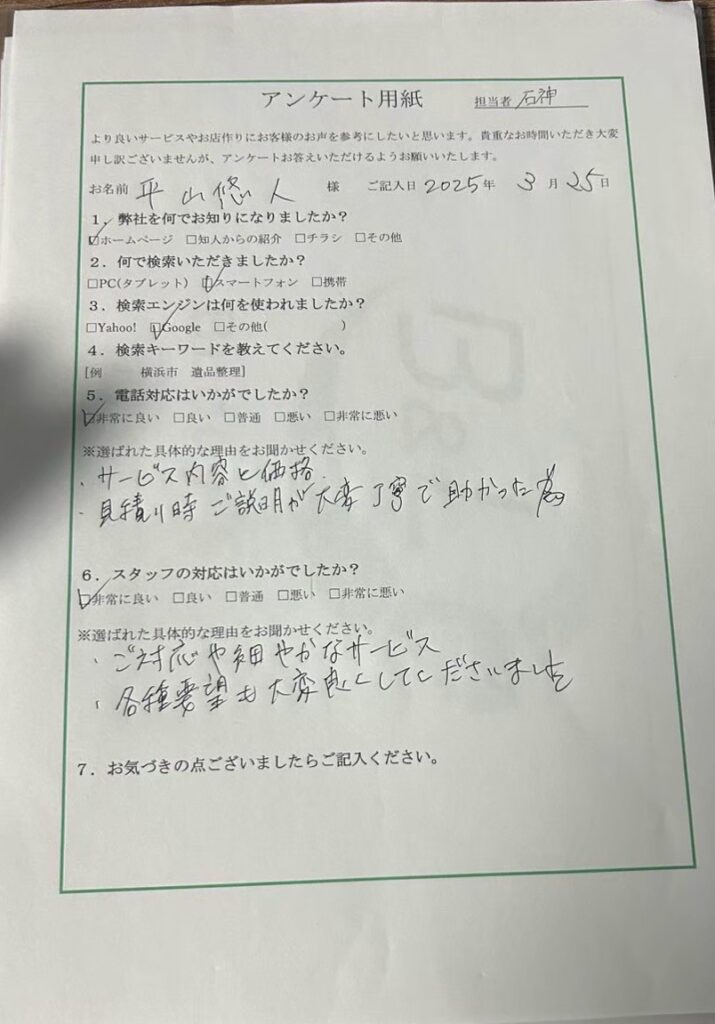 アンケート用紙 担当者 石神
より良いサービスやお店作りにお客様のお声を参考にしたいと思います。貴重なお時間いただき大変
申し訳ございませんが、アンケートお答えいただけるようお願いいたします。
お名前 平山悠人 様 ご記入日 2025年 3月 25日
1．弊社を何でお知りになりましたか？
☑ホームページ □知人からの紹介 □チラシ □その他
2．何で検索いただきましたか？
□PC(タブレット) ☑スマートフォン □携帯
3．検索エンジンは何を使われましたか？
□Yahoo! ☑Google □その他( )
4．検索キーワードを教えてください。
[例 横浜市 遺品整理]
5．電話対応はいかがでしたか？
☑非常に良い □良い □普通 □悪い □非常に悪い
※選ばれた具体的な理由をお聞かせください。
・サービス内容と価格.
・見積り時ご説明が大変丁寧で助かった為
6．スタッフの対応はいかがでしたか？
☑非常に良い □良い □普通 □悪い □非常に悪い
※選ばれた具体的な理由をお聞かせください。
・ご対応や細やかなサービス
・各種要望も大変良くしてくださいました
7．お気づきの点ございましたらご記入ください。